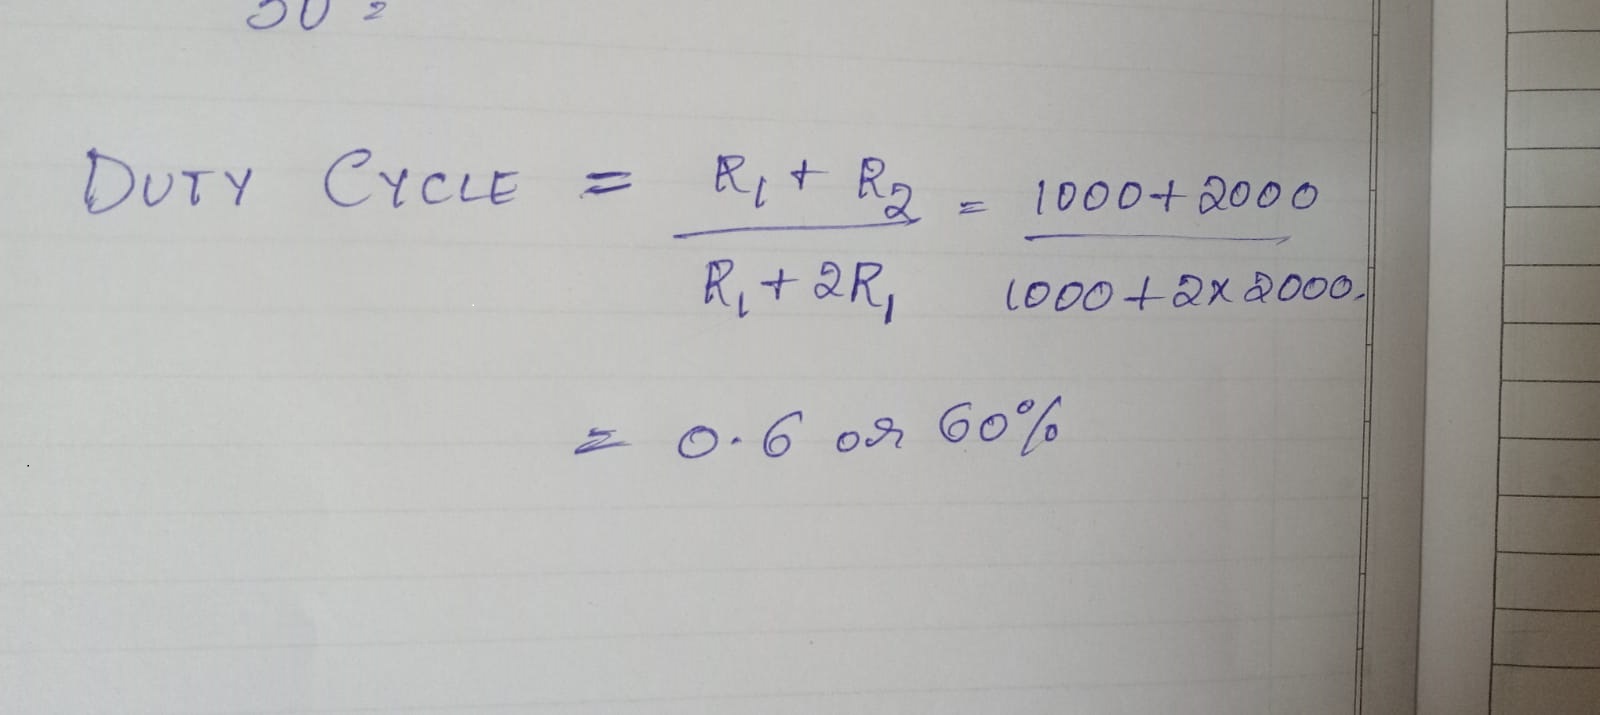 DUTY CYCLE = R₁ + R₂ / R₁ + 2R₁ = 1000 + 2000 / 1000 + 2 x 2000.
= 0.6 or 60%